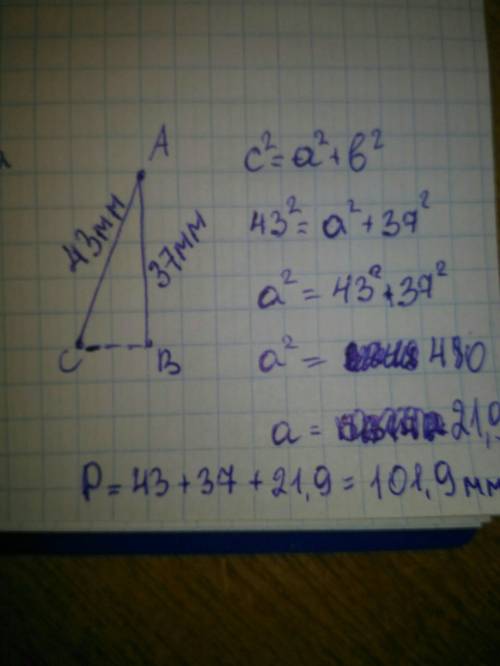 A
43мм
37мм
C
B
c² = a² + b²
43² = a² + 37²
a² = 43² + 37²
a² = 480
a = 21,9
P = 43 + 37 + 21,9 = 101,9 мм